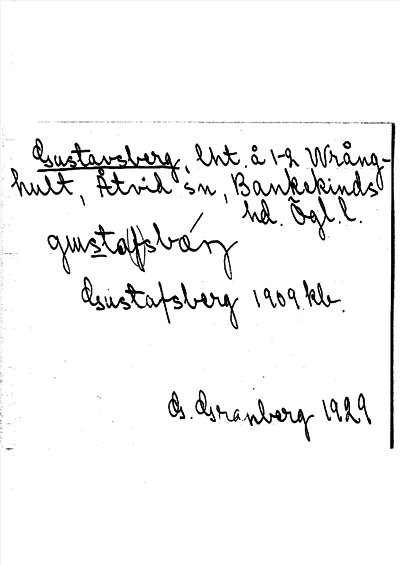 Gustavsberg, lht. å 1-2 Wrång-
hult, Åtvid sn, Bankekinds
hd. Ögl. l.
Gustafsberg 1909 kb.
G. Granberg 1929